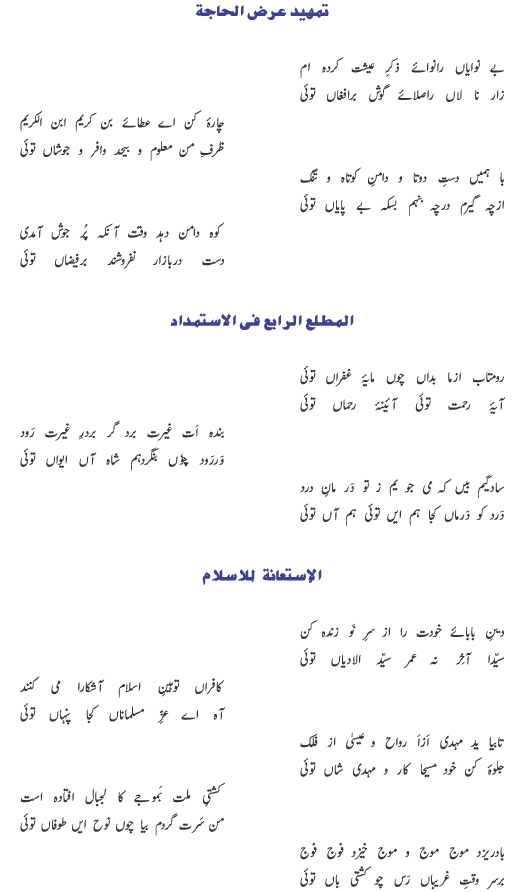 تمہید عرض الحاجة
بے نوایاں رانوائے ذکرِ عیشت کردہ ام
زار نا لاں راصلائے گوش برافغاں توئی
چارۂ کن اے عطائے بن کریم ابن الکریم
ظرفِ من معلوم و بیحد وافر و جوشاں توئی
با ہمیں دستِ دوتا و دامنِ کوتاہ و تنگ
ازچہ گیرم درچہ بنہم بسکہ بے پایاں توئی
کوہ دامن دہد وقت آنکہ پُر جوش آمدی
دست دربازار نفروشند برفیضاں توئی
المطلع الرابع فی الاستمداد
رومتاب ازما بداں چوں مایۂ غفراں توئی
آیۂ رحمت توئی آئینۂ رحماں توئی
بندہ اَت غیرت برد گر بردرِ غیرت رَود
وَررَود چوں بنگردہم شاہ آں ایواں توئی
سادگیم بیں کہ می جو یم ز تو دَر مانِ درد
دَرد کو دَرماں کجا ہم ایں توئی ہم آں توئی
الاستعانة للاسلام
دینِ بابائے خودت را از سرِ نَو زندہ کن
سیّدا آخِر نہ عمر سیّد الادیاں توئی
کافراں توہینِ اسلام آشکارا می کنند
آہ اے عزِّ مسلماناں کجا پنہاں توئی
تابیا ید مہدی اَزاَ رواح و عیسیٰ از فَلک
جلوۂ کن خود مسیحا کار و مہدی شاں توئی
کشتیٔ ملت بَموجے کا لجبال افتادہ است
من سَرت گردم بیا چوں نوح ایں طوفاں توئی
بادریزد موج موج و موج خیزد فوج فوج
برسرِ وقتِ غریباں رَس چو کشتی باں توئی